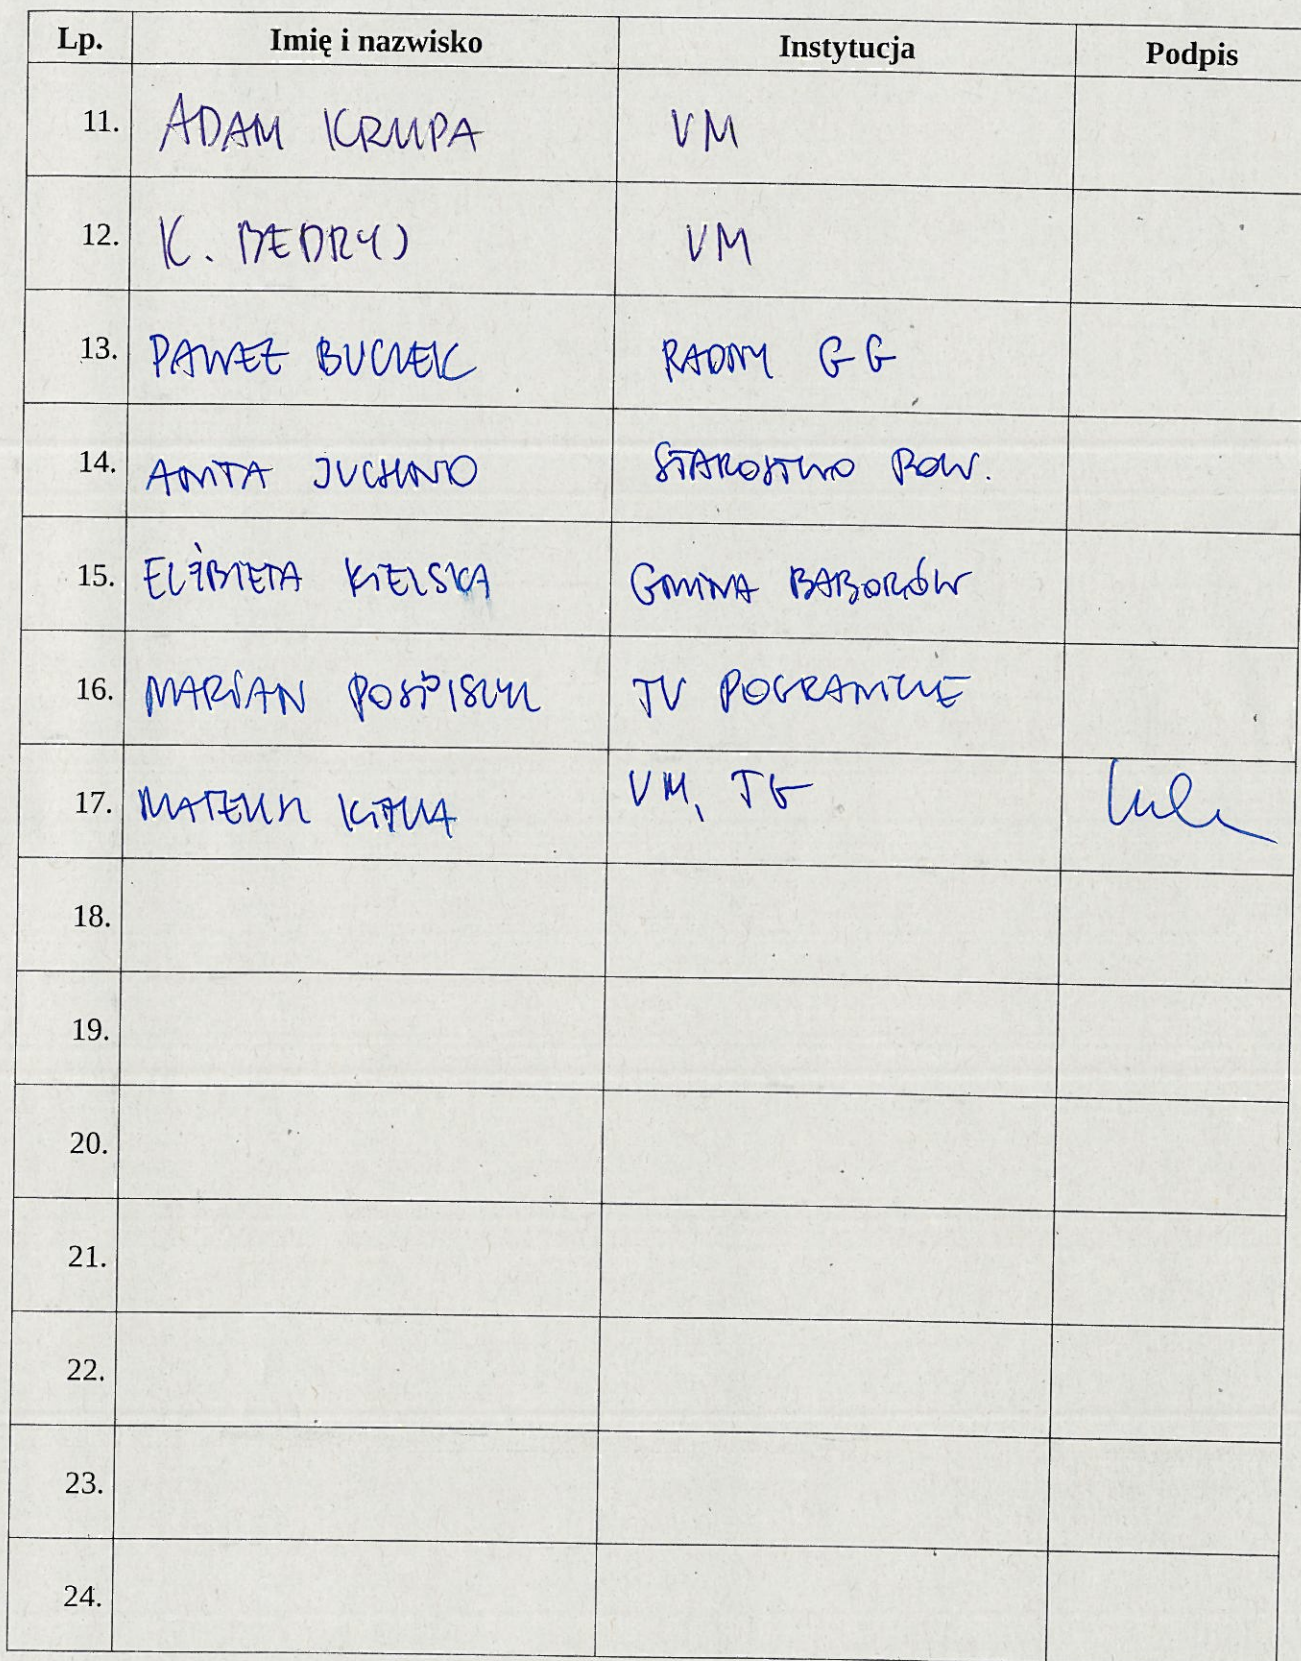 Lp. Imię i nazwisko Instytucja Podpis
11. ADAM KRUPA VM
12. K. BEDRYJ VM
13. PAWEŁ BUCZEK RADNY GG
14. ANITA JUCHNO STAROSTWO POW.
15. ELŻBIETA KIELSKA GMINA BABORÓW
16. MARIAN POSPISZYL TV POGRANICZE
17. MATEUSZ KITKA VM,
18.
19.
20.
21.
22.
23.
24.